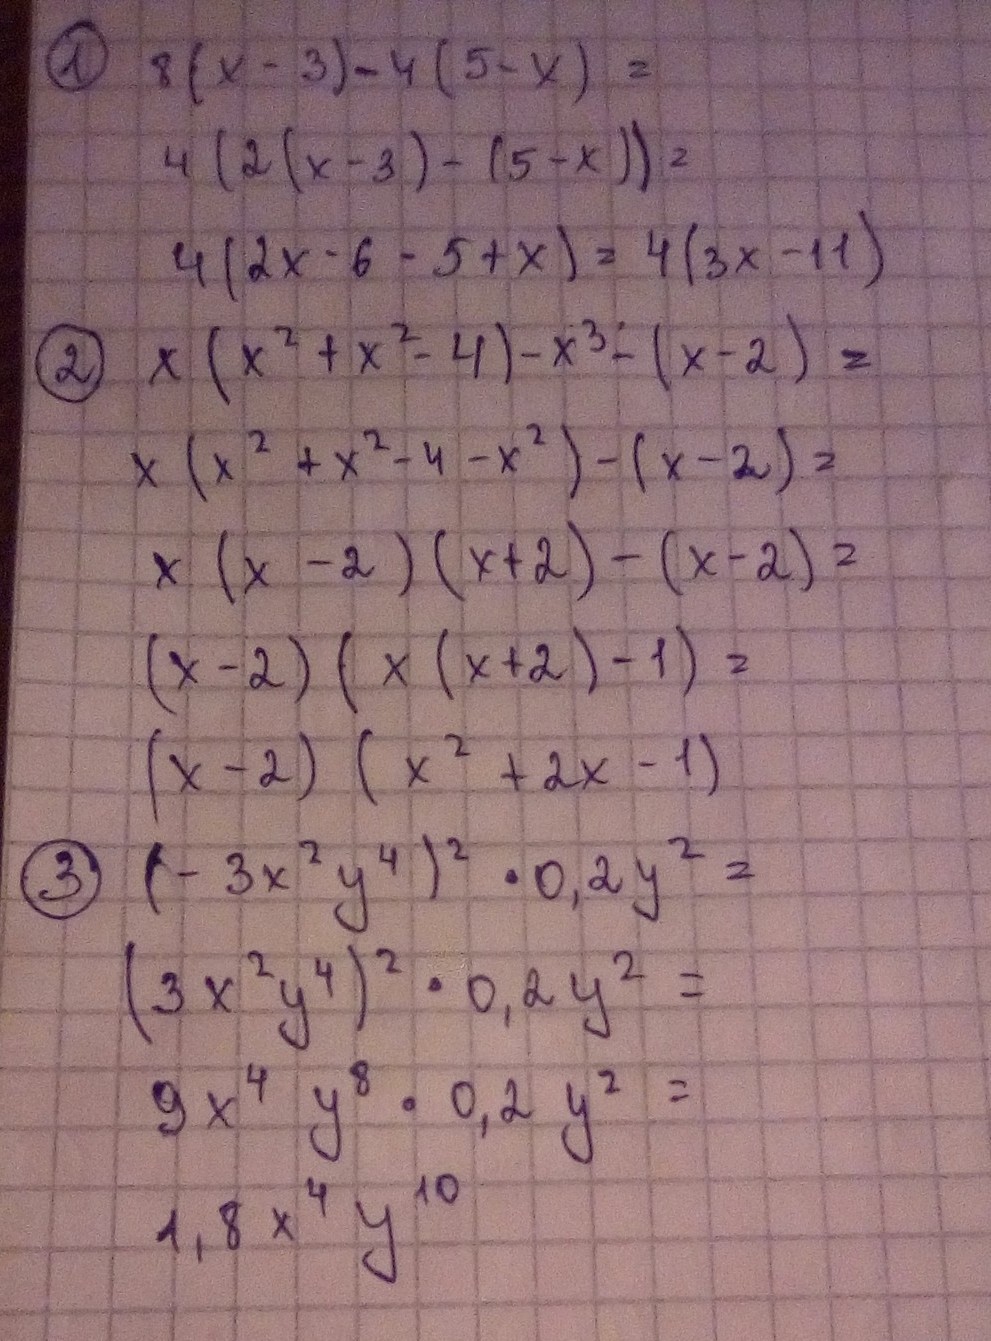 ① 8(x-3)-4(5-x) =
4(2(x-3)-(5-x))=
4(2x-6-5+x)=4(3x-11)
② x(x²+x²-4)-x³-(x-2) =
x(x²+x²-4-x²)-(x-2)=
x(x-2)(x+2)-(x-2)=
(x-2)(x(x+2)-1)=
(x-2)(x²+2x-1)
③ (-3x²y⁴)²·0,2y²=
(3x²y⁴)²·0,2y²=
9x⁴y⁸·0,2y²=
1,8x⁴y¹⁰